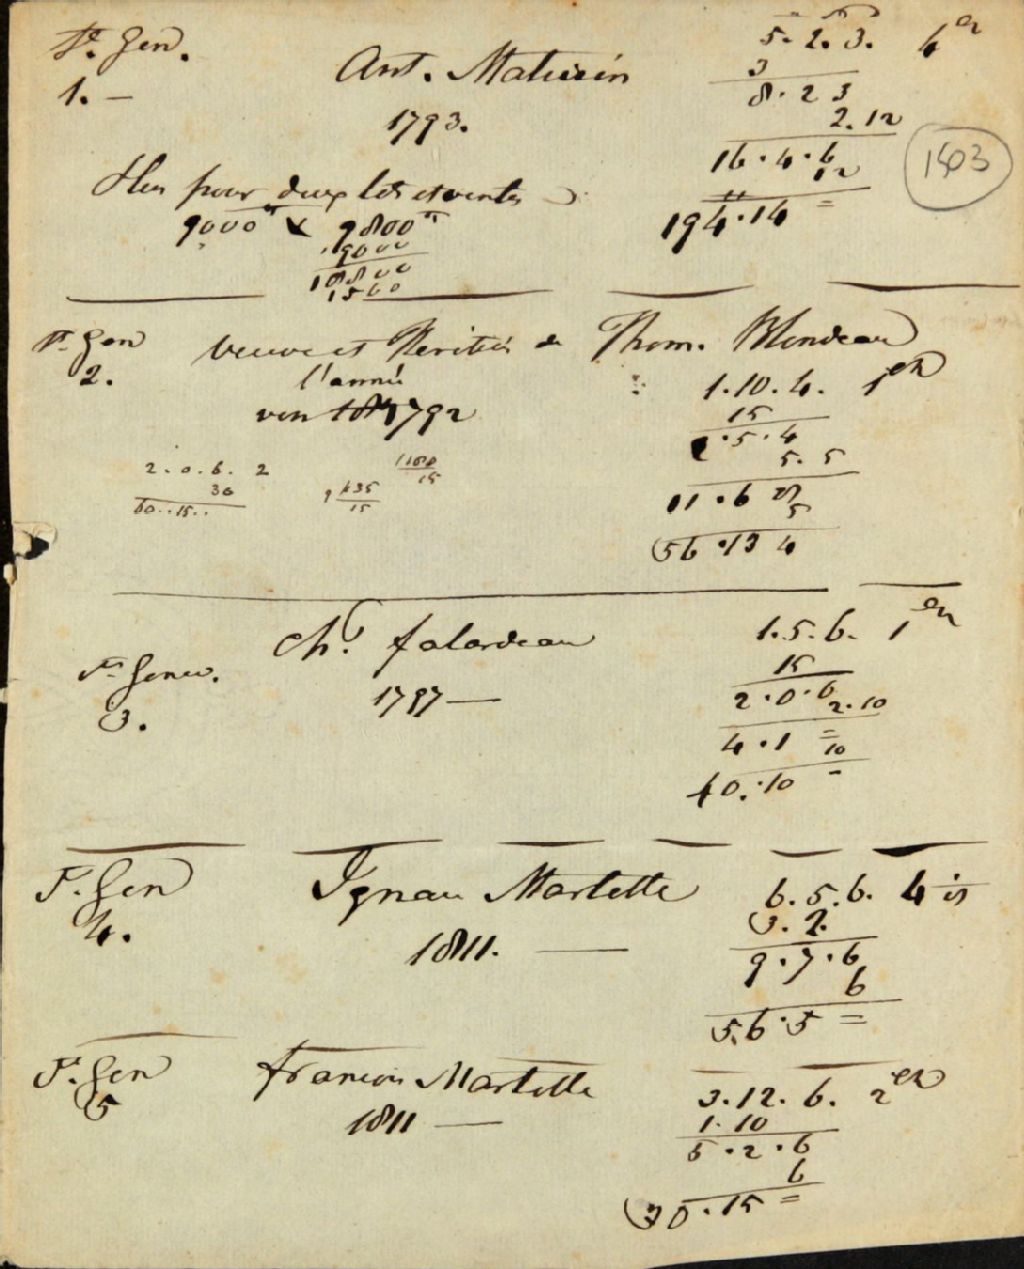 Ste Gen. Ant. Maturin 5. 2. 3. 4 en
1. — 3
8. 2 3
1793. 2. 12
1503
16. 4. 6
12
pour deux lots et ventes
194. 14 =
9000 9800
9000
18800
1560
Ste Gen veuve et Heritiers de Thom. Blondeau
2. l'année 1. 10. 4. 1 en
1792 15
2. 5. 4
2. 0. 6. 2 5. 5
30
60. . 15. .
1100
15
9 135
15
11. 6 8
5
56. 13 4
Chs. falardeau 1. 5. 6. 1 en
Ste Genev. 15
3. 1797 — 2. 0. 6
2. 10
4. 1 =
10
40. 10 -
St. Gen Ignace Martelle 6. 5. 6. 4 is
4. 3. 2.
1811. — 9. 7. 6
6
56. 5 =
St. Gen francois Martelle 3. 12. 6. 2 en
5 1811 — 1. 10
5. 2. 6
6
30. 15 =